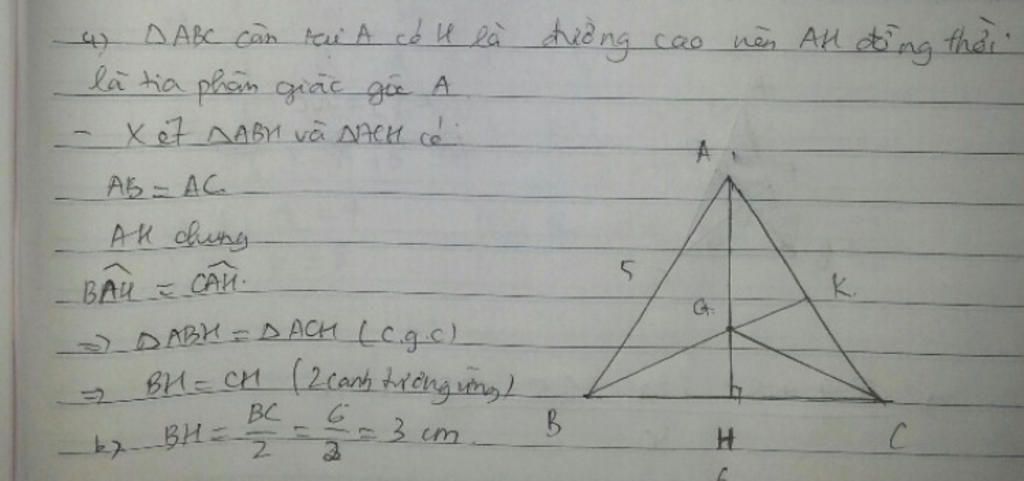 a) △ABC cân tại A có H là đường cao nên AH đồng thời
là tia phân giác góc A
- Xét △ABH và △ACH có
AB = AC
AH chung
BÂH = CÂH.
=> △ABH = △ACH (c.g.c)
=> BH = CH (2 cạnh tương ứng)
b) BH = BC/2 = 6/2 = 3 cm
A
5
K.
G.
B
H
C